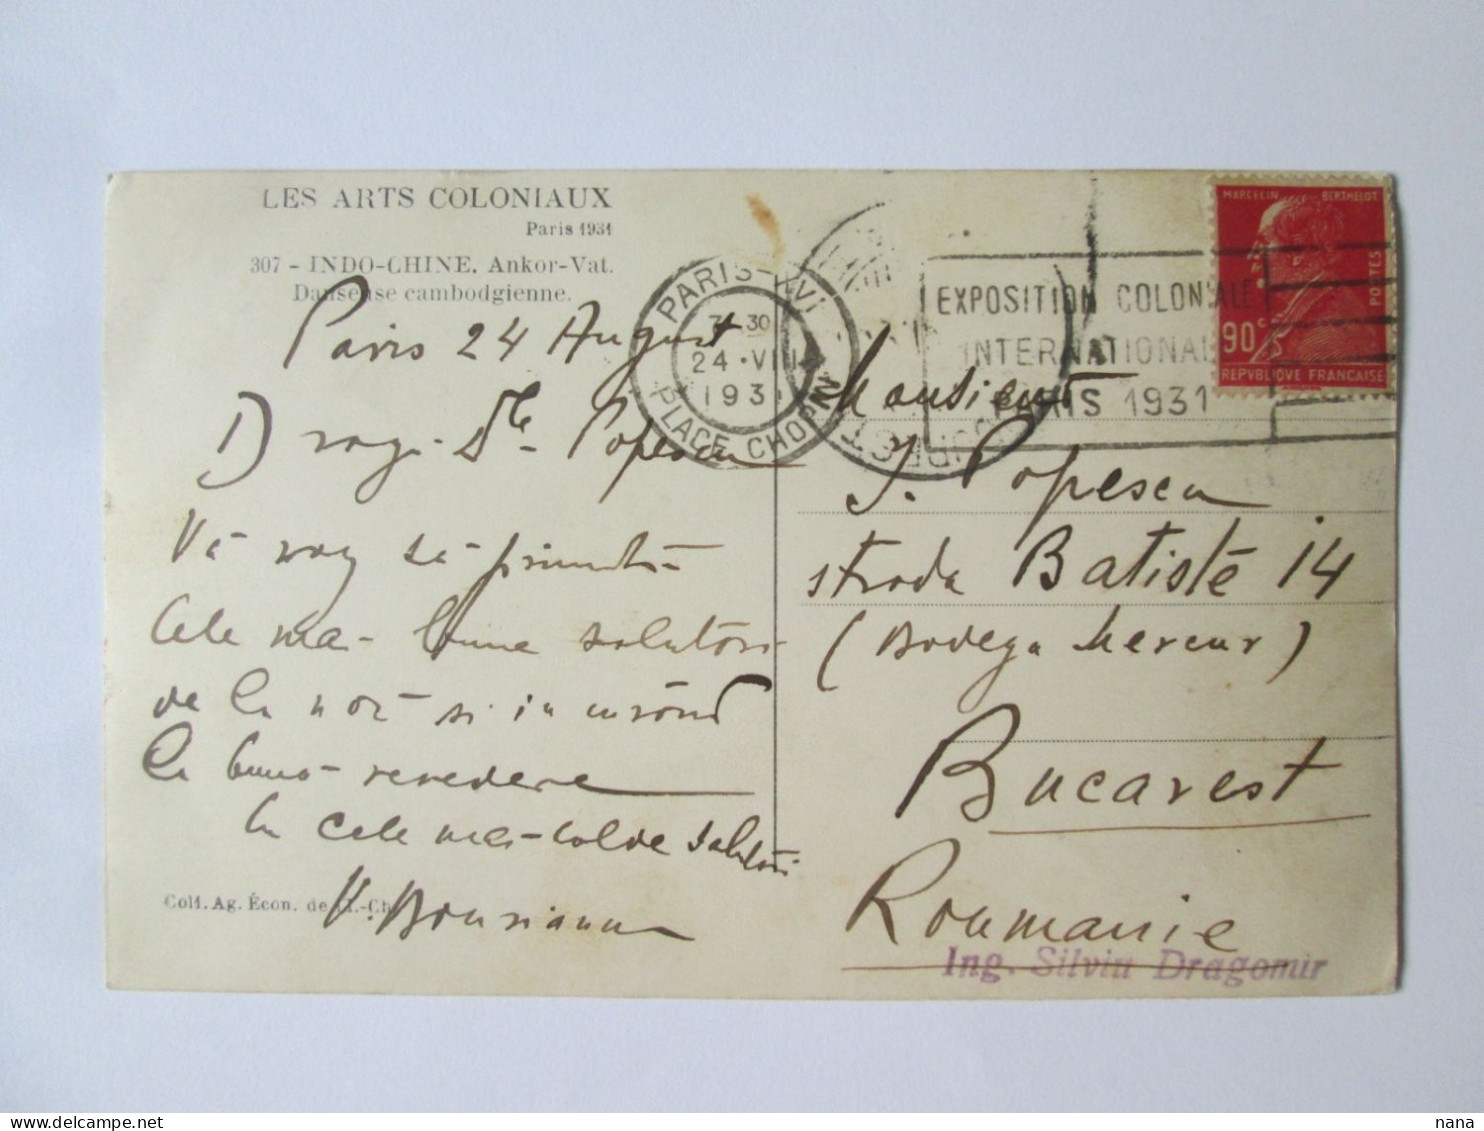 LES ARTS COLONIAUX
Paris 1931
307 - INDO-CHINE. Ankor-Vat.
Danseuse cambodgienne.
Paris 24 August
Dragi Dle Popescu
Vă rog să primiți
Cele mai bune salutări
de la noi si in curând
la buna revedere
Cu cele mai calde salutări
Coll. Ag. Écon. de
PARIS-XVI
7 30
24 · VIII
1931
PLACE CHOPIN
EXPOSITION COLONIALE
INTERNATIONALE
PARIS 1931
MARCELIN BERTHELOT
POSTES
90c
REPVBLIQVE FRANCAISE
Monsieur
J. Popescu
strada Batiste 14
(Bodega Mercur)
Bucarest
Roumanie
Ing. Silviu Dragomir
www.delcampe.net
nana